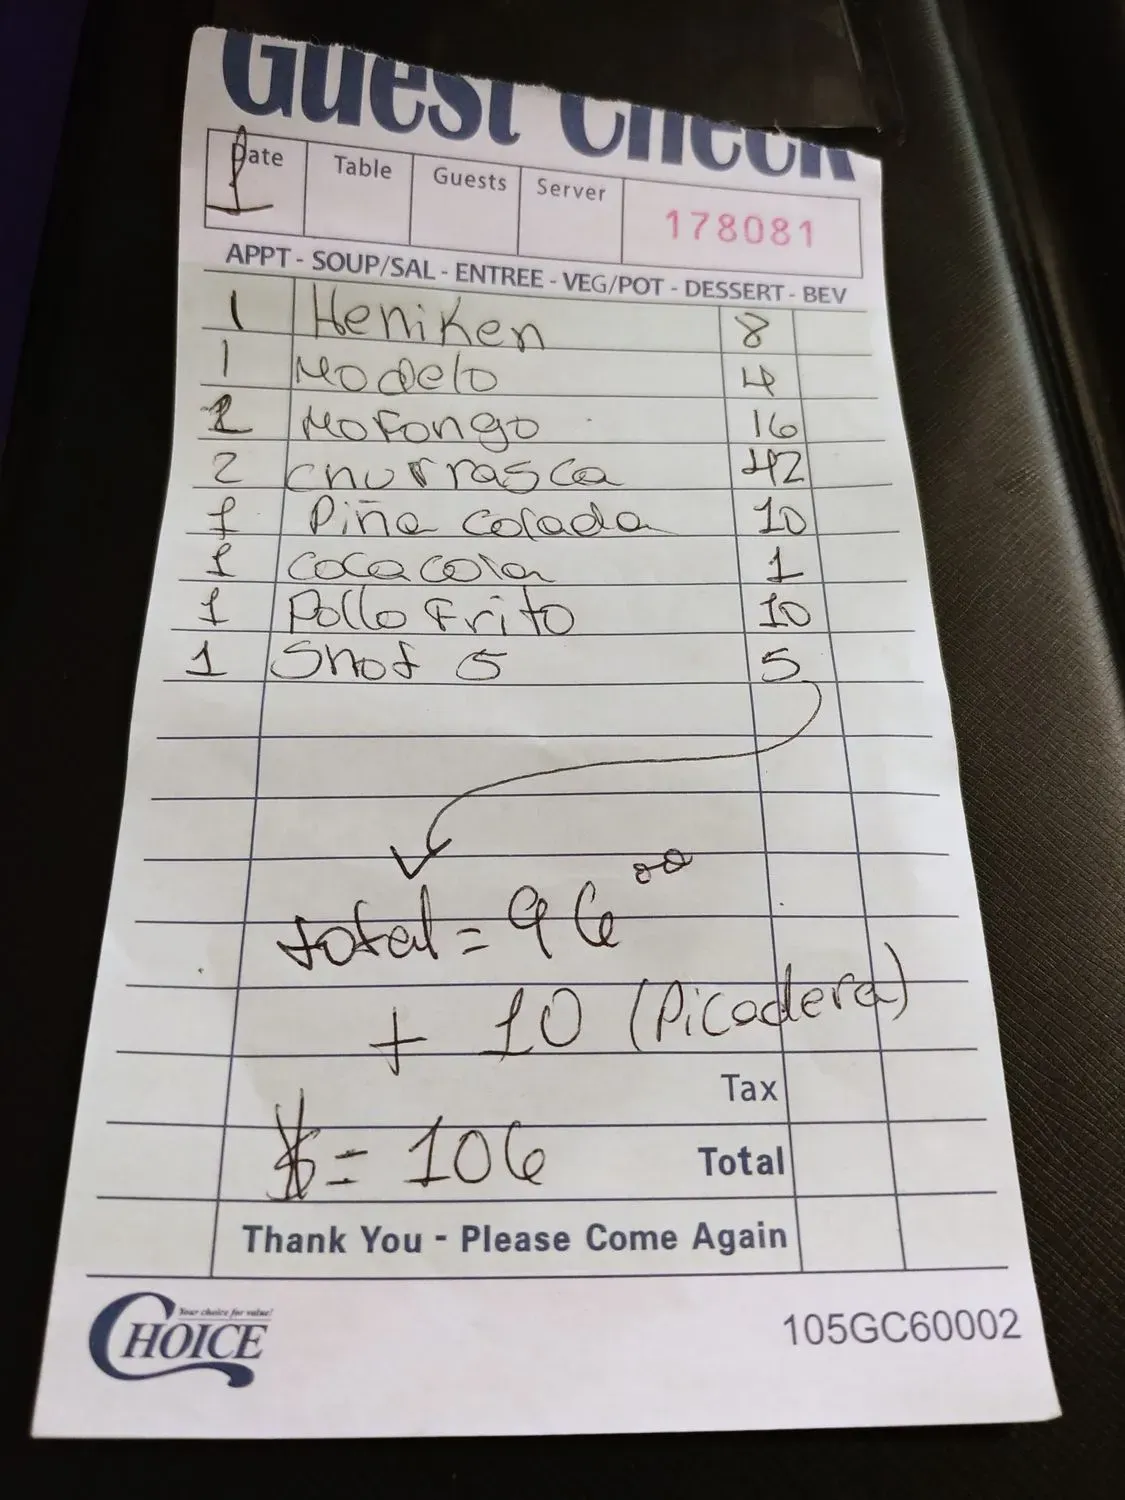 Guest Check
Date Table Guests Server 178081
1
APPT - SOUP/SAL - ENTREE - VEG/POT - DESSERT - BEV
1 Heniken 8
1 Modelo 4
Mofongo 16
2 churrasca 42
1 Piña colada 10
1 coca cola 1
1 Pollo Frito 10
1 Shot 5 5
total = 96 00
+ 10 (Picadera)
Tax
$ = 106 Total
Thank You - Please Come Again
Your choice for value!
CHOICE 105GC60002